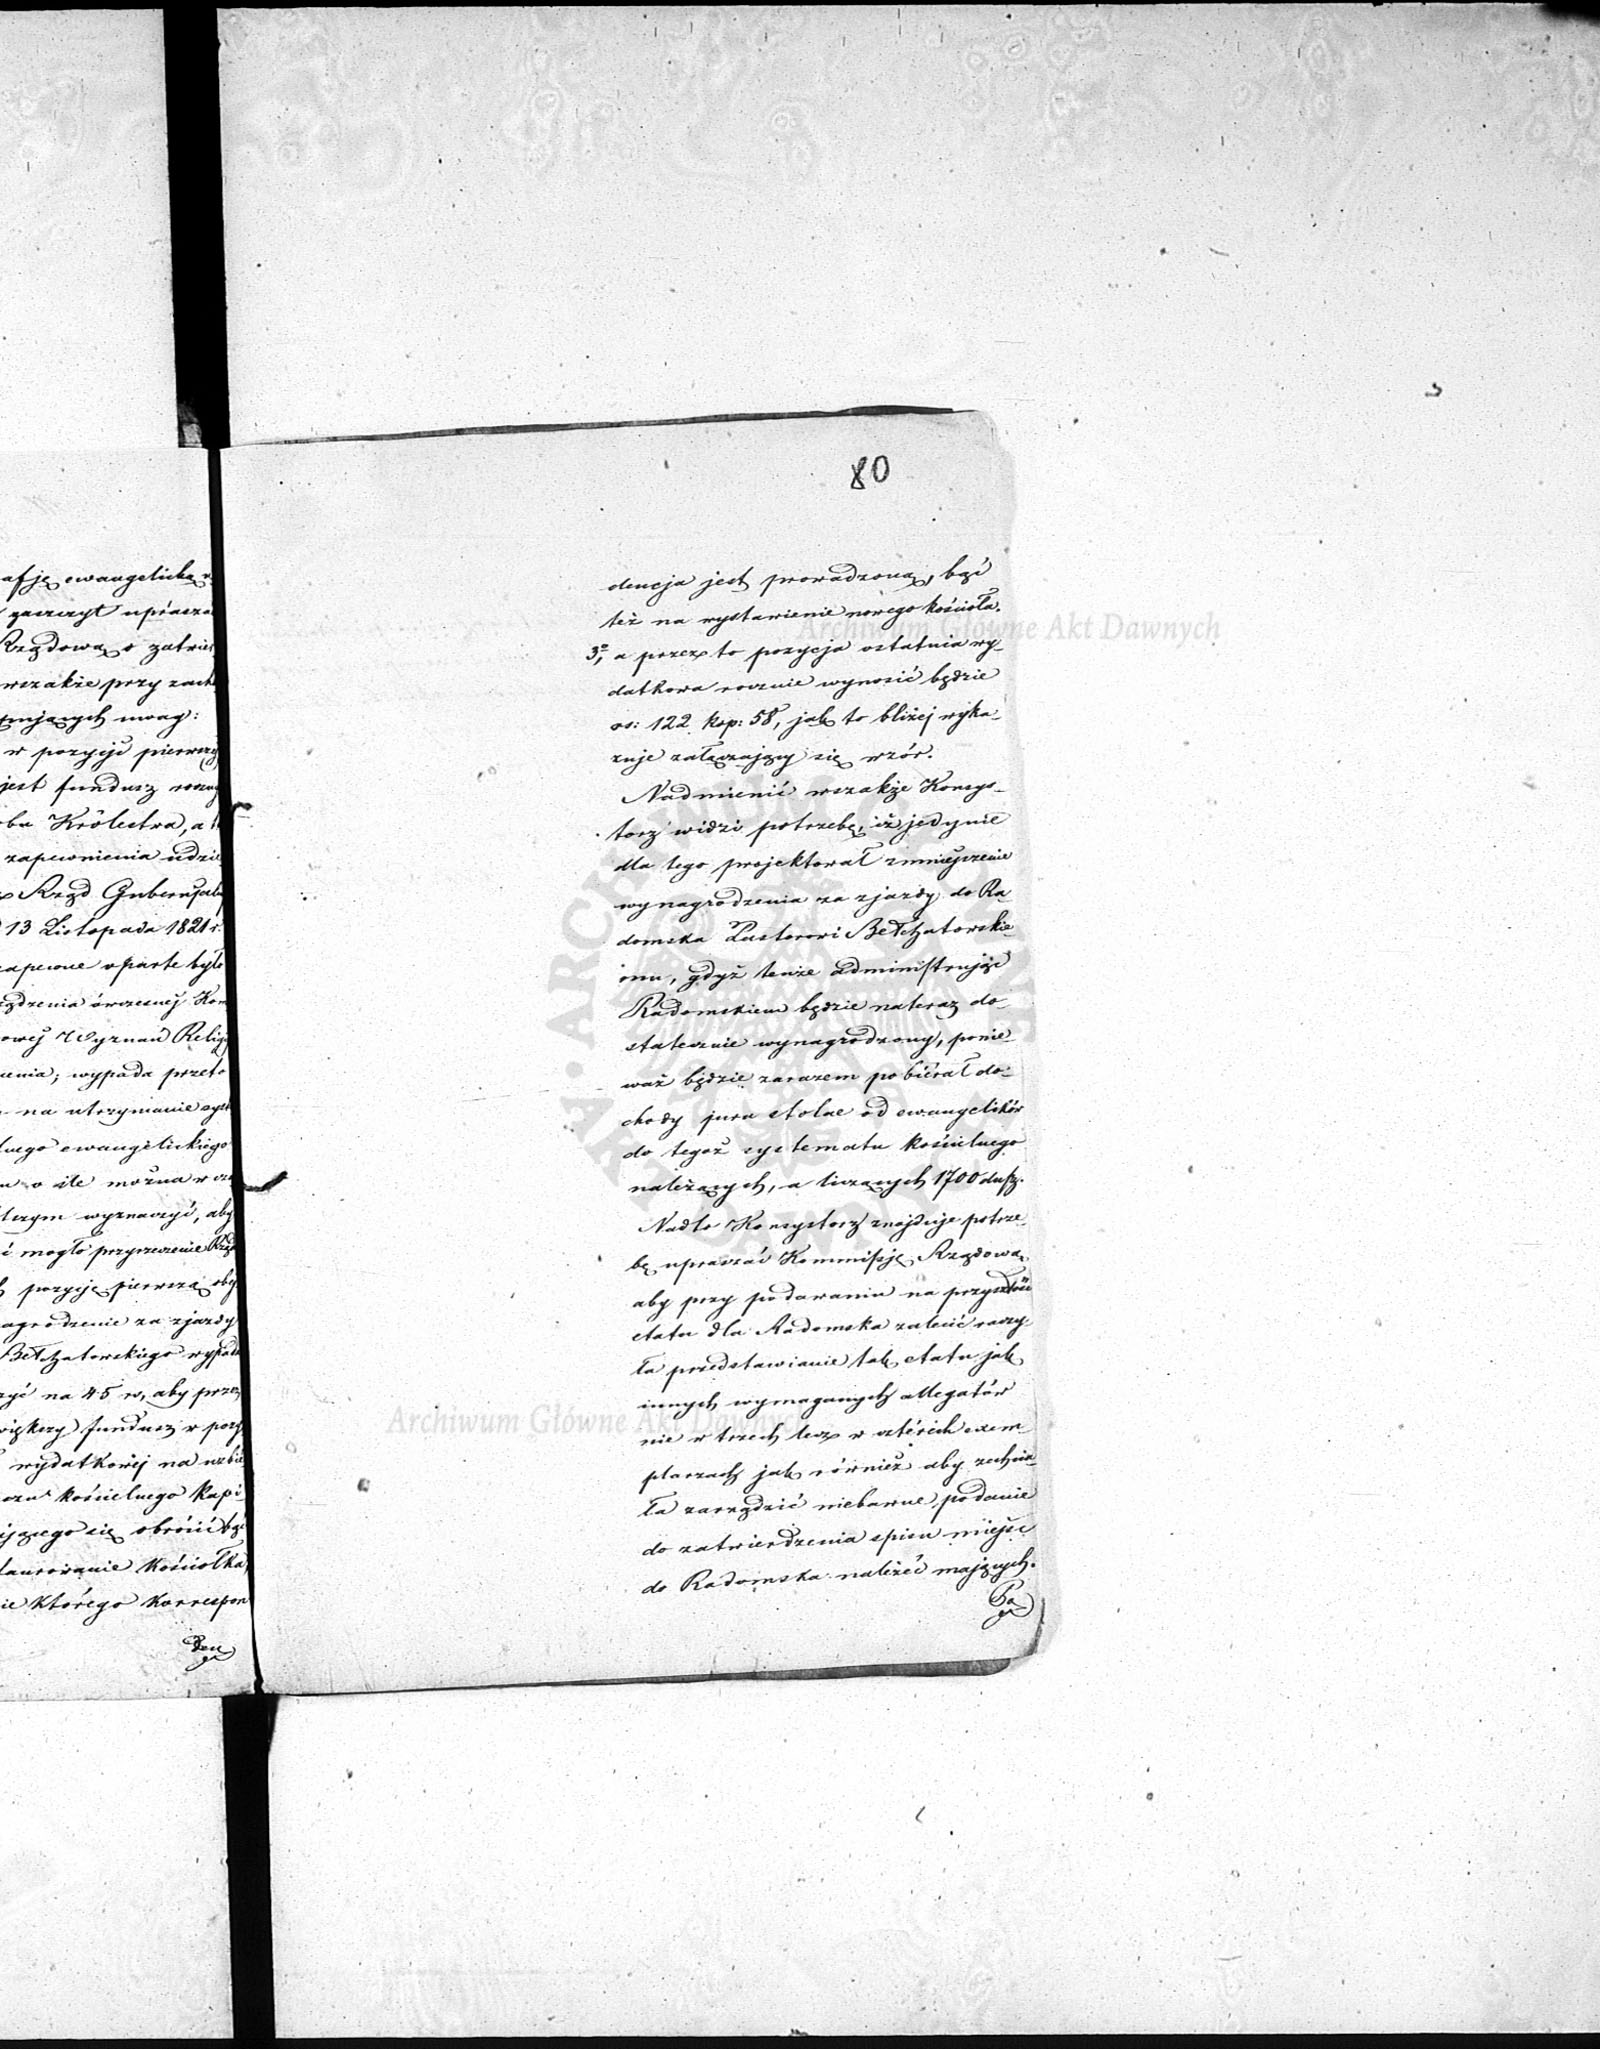 afję ewangelicką w
zaszczyt uprasza
Rządową o zatwier
wszakże przy zach
pujących uwag:
w pozycji pierwszej
jest fundusz roczny
bu Królestwa, a
zapewnienia udzie
Rząd Gubernjalny
13 Listopada 1821 r.
zapewne oparte było
ządzenia ówczesnej Kom
owej Wyznań Relig
cenia; wypada przeto
na utrzymanie syst
lnego ewangelickiego
o ile można w
tszym wyznaczyć, aby
i mogło przyrzeczenie Rzą
pozycję pierwszą obe
agrodzenie za zjazdy
Bełchatowskiego wypada
zyć na 45 r, aby przez
większy fundusz w pozy
wydatkowej na uzbie
kościelnego Kapi
jącego się obrócić bąć
taurowanie Kościołka
ie którego Korrespon
den
80
dencja jest prowadzona, bąć
też na wystawienie nowego kościoła.
3º, a przez to pozycja ostatnia wy-
datkowa rocznie wynosić będzie
rs: 122 kop: 58, jak to bliżej wyka-
zuje załączający się wzór.
Nadmienić wszakże Konsys-
torz widzi potrzebę, iż jedynie
dla tego projektował zmniejszenie
wynagrodzenia za zjazdy do Ra-
domska Pastorowi Bełchatowskie-
mu, gdyż tenże administrując
Radomskiem będzie nateraz do-
statecznie wynagrodzony, ponie-
waż będzie zarazem pobiérał do-
chody jura stolae od ewangelików
do tegoż systematu kościelnego
należących, a liczących 1700 dusz.
Nadto Konsystorz znajduje potrze-
bę upraszać Kommissję Rządową,
aby przy podawaniu na przyszłość
etatu dla Radomska zalecić raczy-
ła przedstawianie tak etatu jak
innych wymaganych allegatów
nie w trzech lecz w cztérech exem-
plarzach jak również aby zechcia-
ła zarządzić niebawne podanie
do zatwierdzenia spisu miejsc
do Radomska należéć mających.
Po
Archiwum Główne Akt Dawnych
Archiwum Główne Akt Dawnych